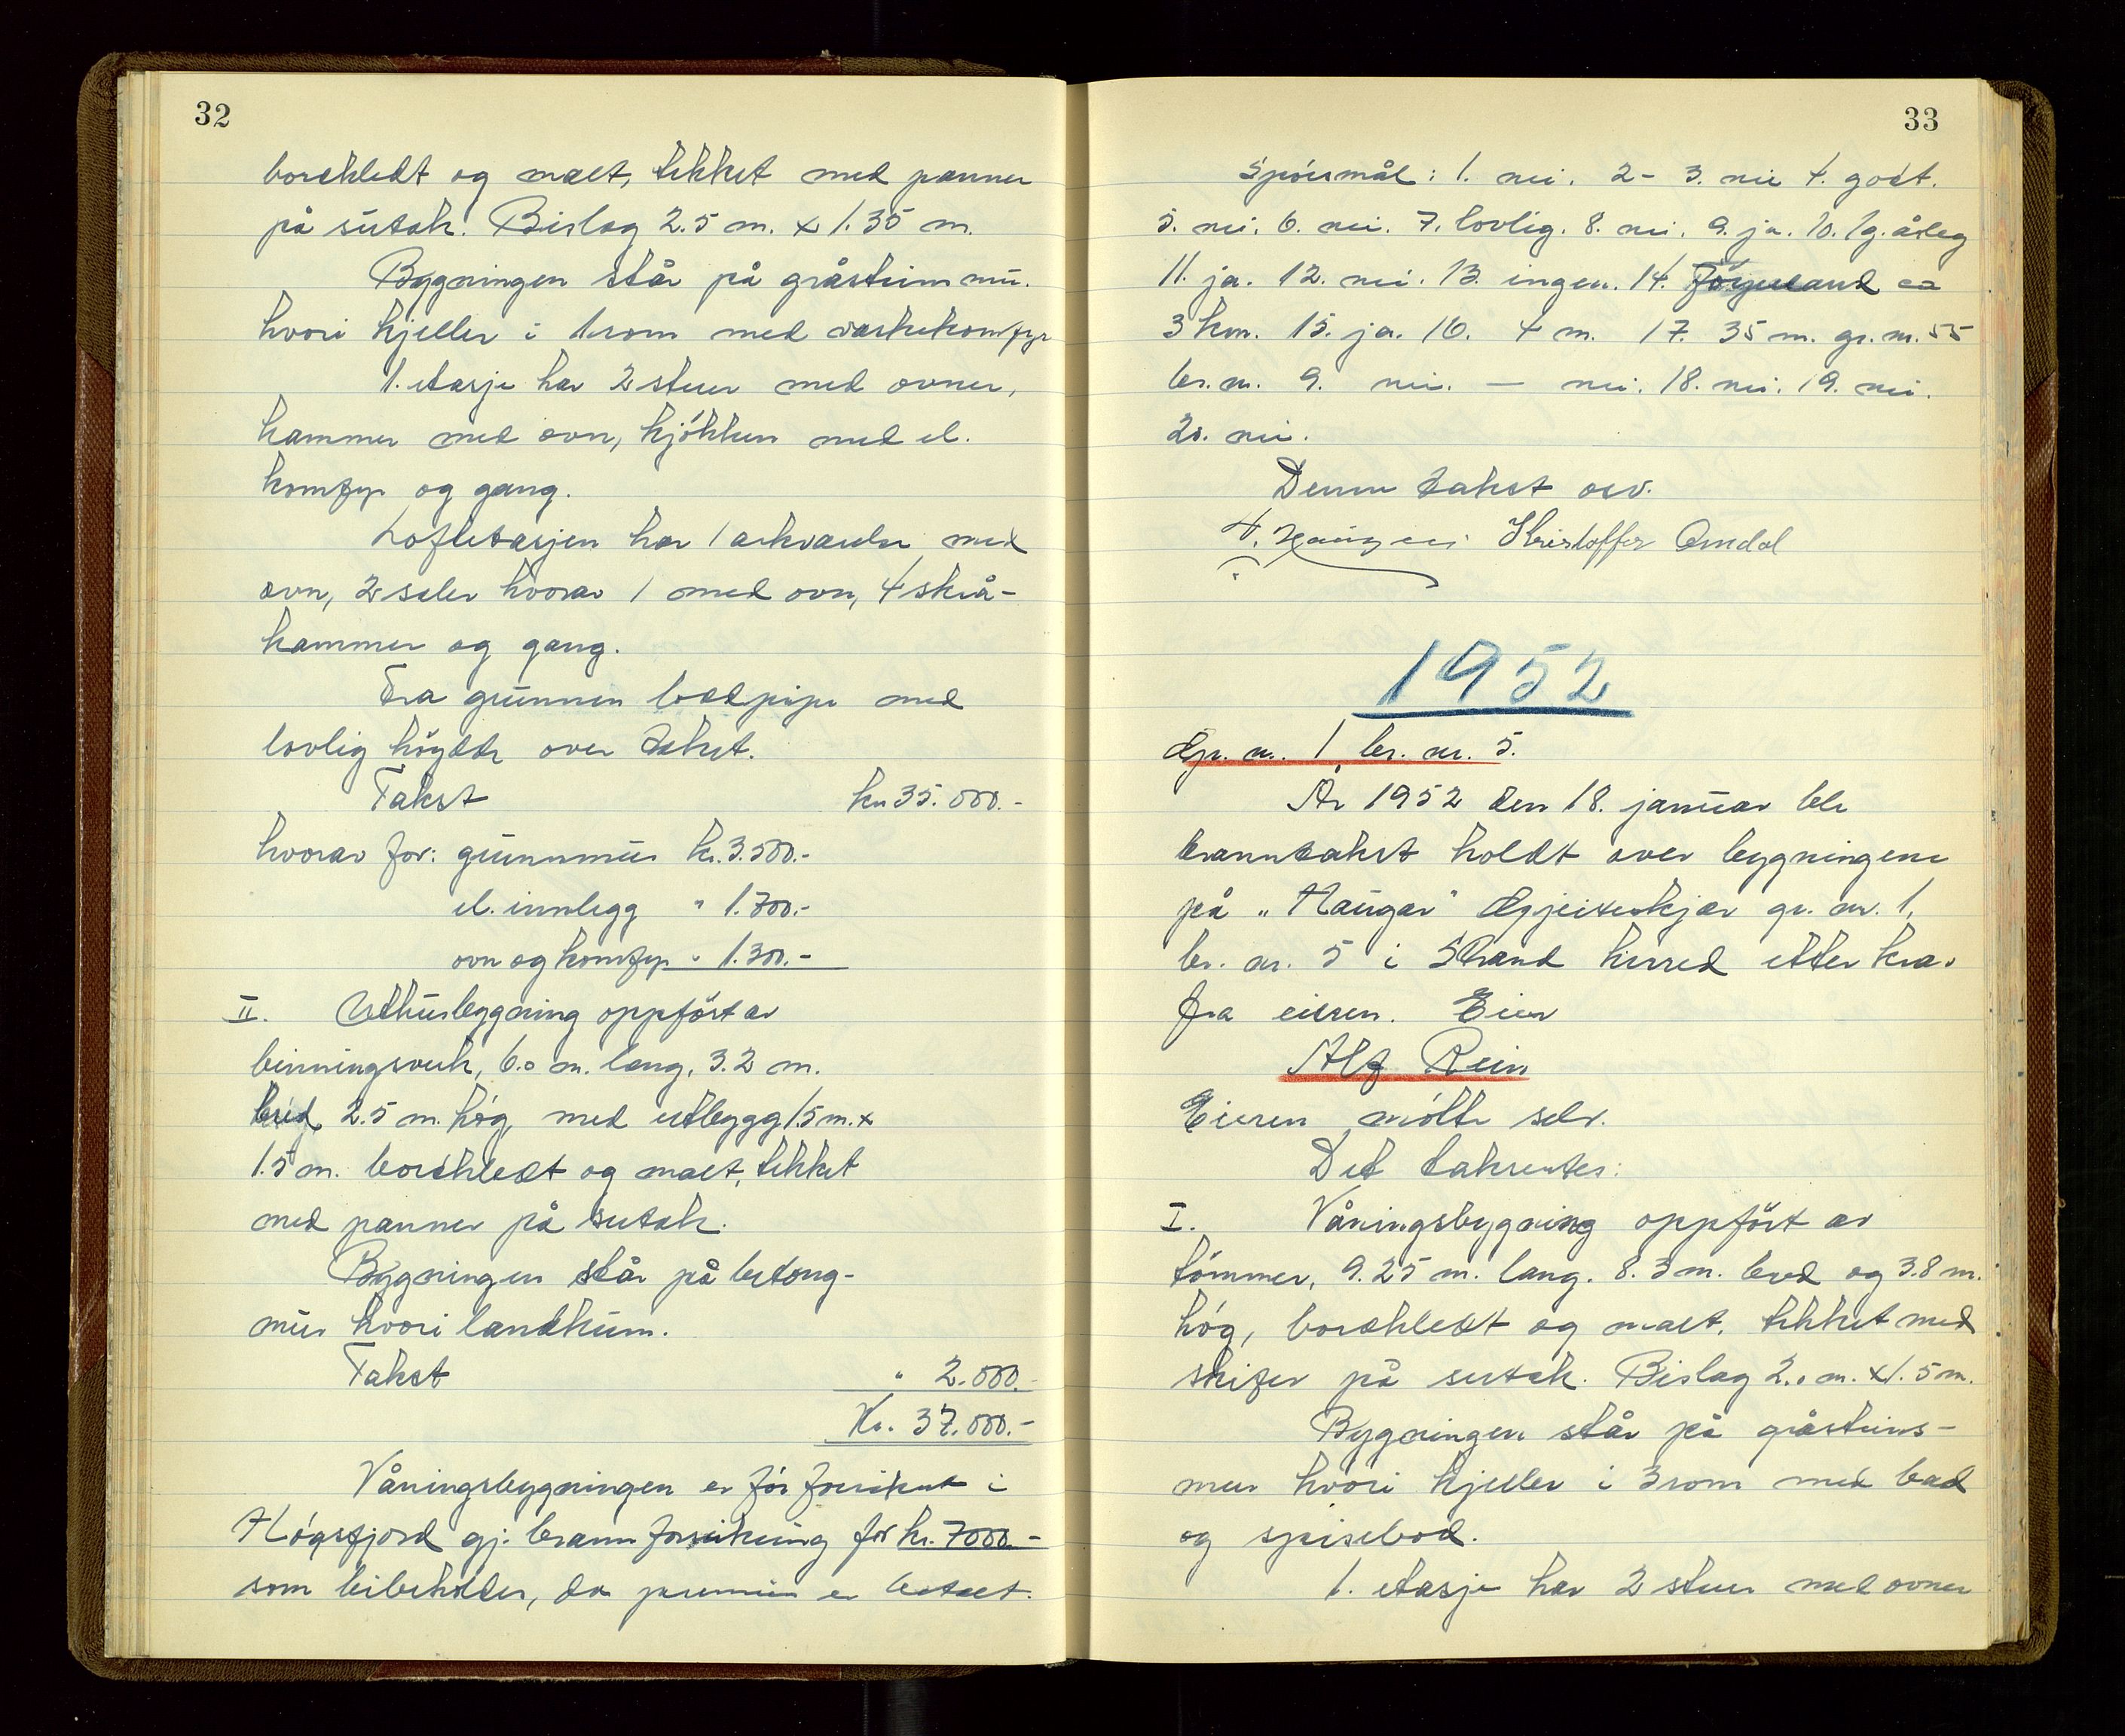 32
bordkledt og malt, tekket med panner
på sutak. Bislag 2.5 m. x 1.35 m.
Bygningen står på gråsteinmu.
hvori kjeller i 1 rom med vaskekomfyr
1. etasje har 2 stuer med ovner,
kammer med ovn, kjökken med el.
komfyr og gang.
Loftetasjen har 1 arkværelse med
ovn, 2 saler hvorav 1 med ovn, 4 skrå-
kammer og gang.
Fra grunnen ledpipe med
lovlig högde over taket.
Takst kr 35.000.-
hvorav for: grunnmur kr. 3.500.-
el. innlegg " 1.700.-
ovn og komfyr " 1.300.-
II. Uthusbygning oppfört av
binningsverk, 6.0 m. lang, 3.2 m.
breid, 2.5 m. hög, med utbygg 1.5 m. x
1.5 m. bordkledt og malt, tekket
med panner på sutak.
Bygningen står på betong-
mur hvori landkum.
Takst " 2.000.-
Kr. 37.000.-
Våningsbygningen er för forsikret i
Högsfjord gj. brannforsikring for kr. 7000.-
som beibeholdes, da premien er betalt.
33
Spörsmål: 1. nei. 2 - 3. nei 4. godt.
5. nei. 6. nei. 7. lovlig. 8. nei. 9. ja. 10. 1 g. årleg
11. ja. 12. nei. 13. ingen. 14. Jörpeland ca
3 km. 15. ja. 16. 4 m. 17. 35 m. gr. nr. 55
br. nr. 9. nei. — nei. 18. nei. 19. nei.
20. nei.
Denne takst osv.
Kristoffer Omdal
1952
Gr. nr. 1, br. nr. 5.
År 1952 den 18. januar ble
branntakst holdt over bygningene
på "Haugar" Gjeiteskjær gr. nr. 1,
br. nr. 5 i Strand herred etter krav
fra eieren. Eier
Alf Rein
Eieren mötte selv.
Det takseretes:
I. Våningsbygning oppfört av
tömmer, 9.25 m. lang. 8.3 m. bred og 3.8 m.
hög, bordkledt og malt, tekket med
skifer på sutak. Bislag 2.0 m. x 1.5 m.
Bygningen står på gråsteins-
mur hvori kjeller i 3 rom med bad
og spisebod.
1. etasje har 2 stuer med ovner